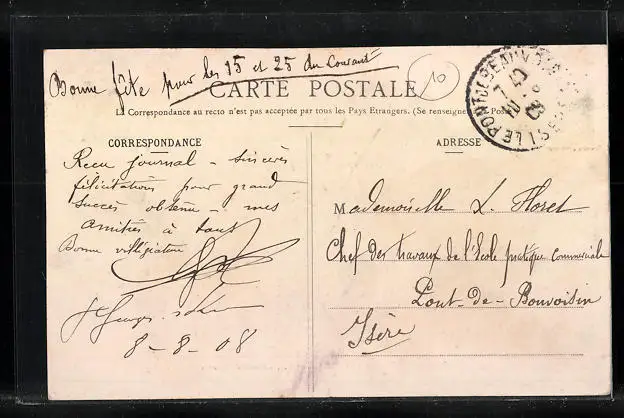 Bonne fête pour les 15 et 25 du Courant
10
CARTE POSTALE
La Correspondance au recto n'est pas acceptée par tous les Pays Etrangers. (Se renseigner à la Poste)
CORRESPONDANCE
ADRESSE
Reçu journal - sincères
félicitations pour grand
succès obtenu - mes
amitiés à tous
Bonne villégiature
8-8-08
Mademoiselle L. Floret
Chef des travaux de l'Ecole pratique commerciale
Pont-de-Bonvoisin
Isère
LE PONT DE BEAUVOISIN
ISERE